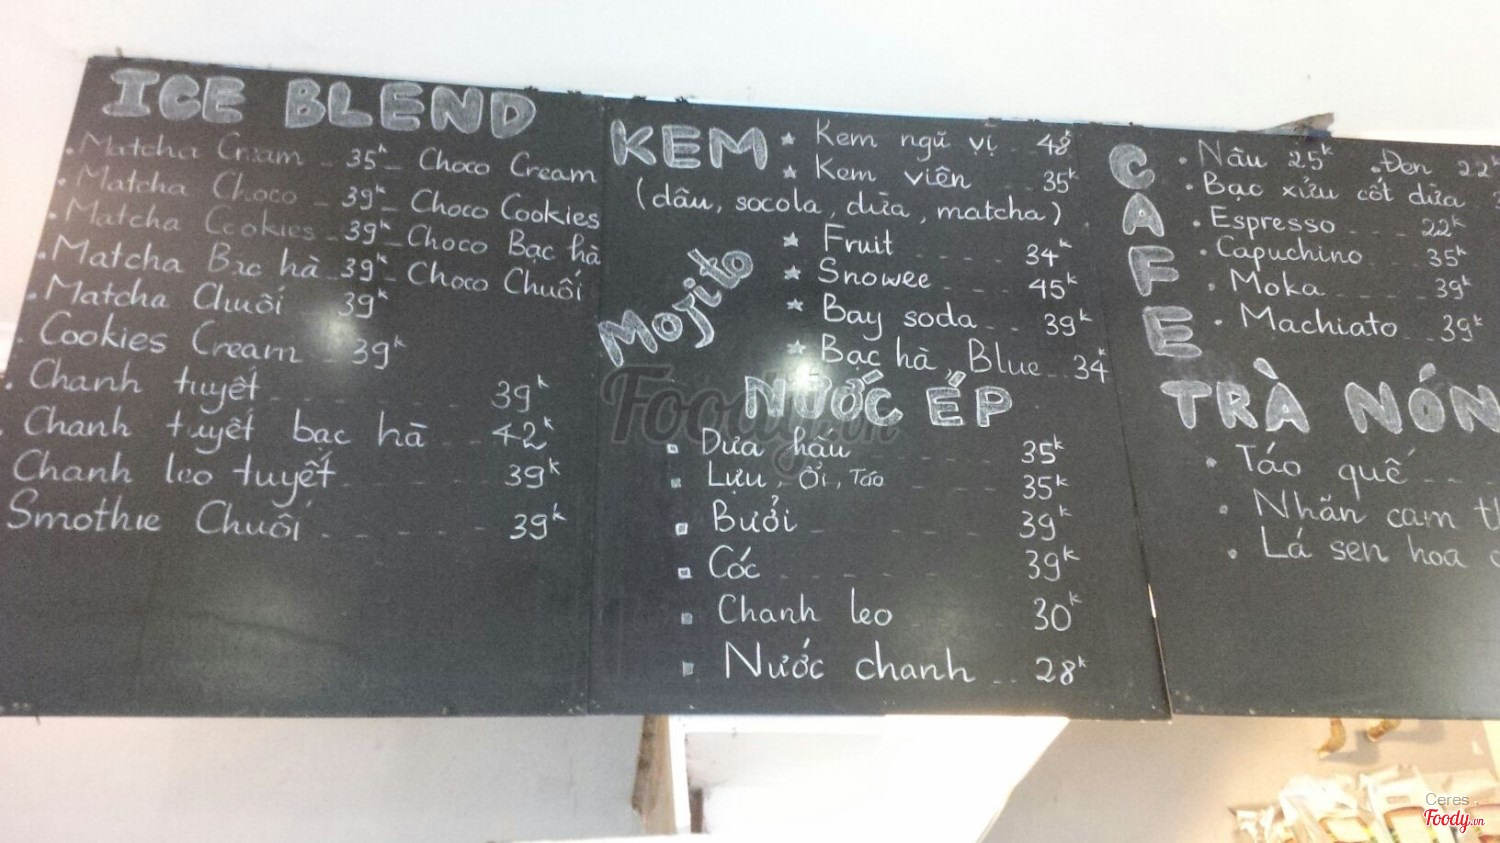 ICE BLEND
Matcha Cream 35k Choco Cream
Matcha Choco 39k Choco Cookies
Matcha Cookies 39k Choco Bạc hà
Matcha Bạc hà 39k Choco Chuối
Matcha Chuối 39k
Cookies Cream 39k
Chanh tuyết 39k
Chanh tuyết bạc hà 42k
Chanh leo tuyết 39k
Smothie Chuối 39k
KEM
Kem ngũ vị 48k
Kem viên 35k
(dâu, socola, dừa, matcha)
Mojito
Fruit 34k
Snowee 45k
Bay soda 39k
Bạc hà, Blue 34k
NƯỚC ÉP
Dưa hấu 35k
Lựu, Ổi, Táo 35k
Bưởi 39k
Cóc 39k
Chanh leo 30k
Nước chanh 28k
CAFE
Nâu 25k Đen 22k
Bạc xỉu cốt dừa
Espresso 22k
Capuchino 35k
Moka 39k
Machiato 39k
TRÀ NÓN
Táo quế
Nhãn cam
Lá sen hoa
Foody.vn
Ceres
Foody.vn